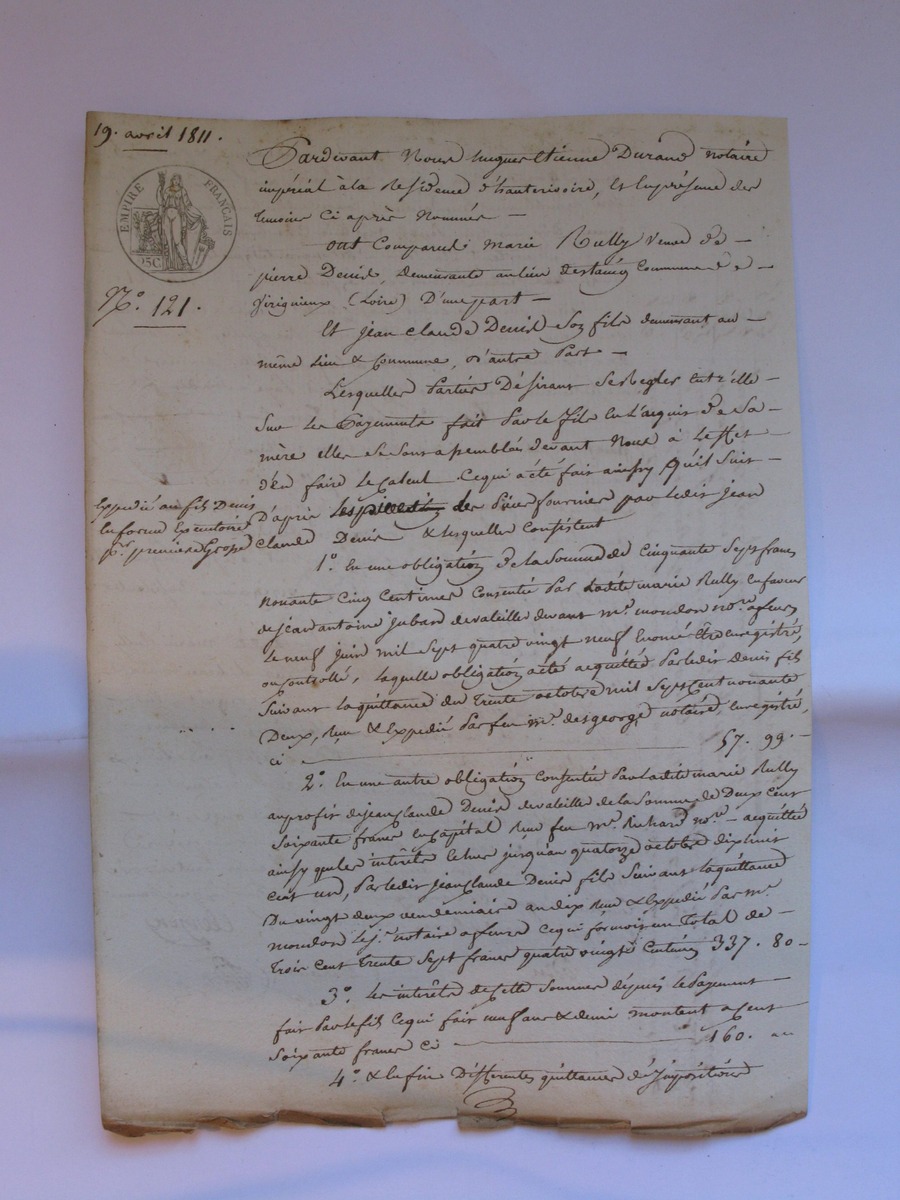 19. avril 1811.
EMPIRE FRANÇAIS
N.° 121.
Pardevant Nous hugues Etienne Durand notaire
impérial à la Residence d'hauterivoire, Et En présence des
temoins Ci après Nommés —
ont Comparus: Marie Rully veuve de —
pierre Denis, demeurante au lieu Commune de —
Virignieux (Loire) D'une part —
Et jean Claude Denis Son fils demeurant au —
même lieu & Commune, d'autre Part —
Lesquelles Parties Désirant Se Regler Entr'elle —
Sur les Payements fait Par le fils En L'acquis de Sa —
mère elles Se Sont assemblés devant Nous à L'effet —
d'En faire Le Calcul Ce qui a été fait ainsy qu'il Suit —
Expedié au fils Denis
En forme Executoire
pr. premiere Grosse
D'après des Sieur fournier par Ledit Jean
Claude Denis & lesquelles Consistent
1.° En une obligation de la Somme de Cinquante Sept francs
Nonante Cinq Centimes Consentie Par Ladite marie Rully En faveur
de jean antoine de valeille devant m.e mondon no.re a feurs
Le neuf juin mil Sept quatre vingt neuf Enregistré,
ou Controllé, laquelle obligation a été acquittée Par ledit Denis fils
Suivant la quittance du Trente octobre mil Sept Cent nonante
Deux, Reçu & Expedié Par feu m.e desgeorge notaire, Enregistré,
ci 57. 99. —
2.° En une autre obligation Consentie Par Ladite marie Rully
au profit de jean Claude Denis de valeille de la Somme de Deux Cent
Soixante francs En Capital Reçu feu m.e Richard no.re — acquittée
ainsy que les interêts jusqu'au quatorze octobre dix huit
Cent un, Par ledit jean Claude Denis fils Suivant la quittance
Du vingt deux vendemiaire an dix Reçu & Expedié Par m.e
mondon Le j.e notaire a feurs Ce qui forme un Total de —
Trois Cent Trente Sept francs quatre vingt Centimes 337. 80 —
3.° Les interêts de Cette Somme depuis le Payement —
fait Par le fils Ce qui fait neuf ans & demi montent a Cent
Soixante francs Ci 160.
4.° & Enfin Differentes quittances d'Impositions